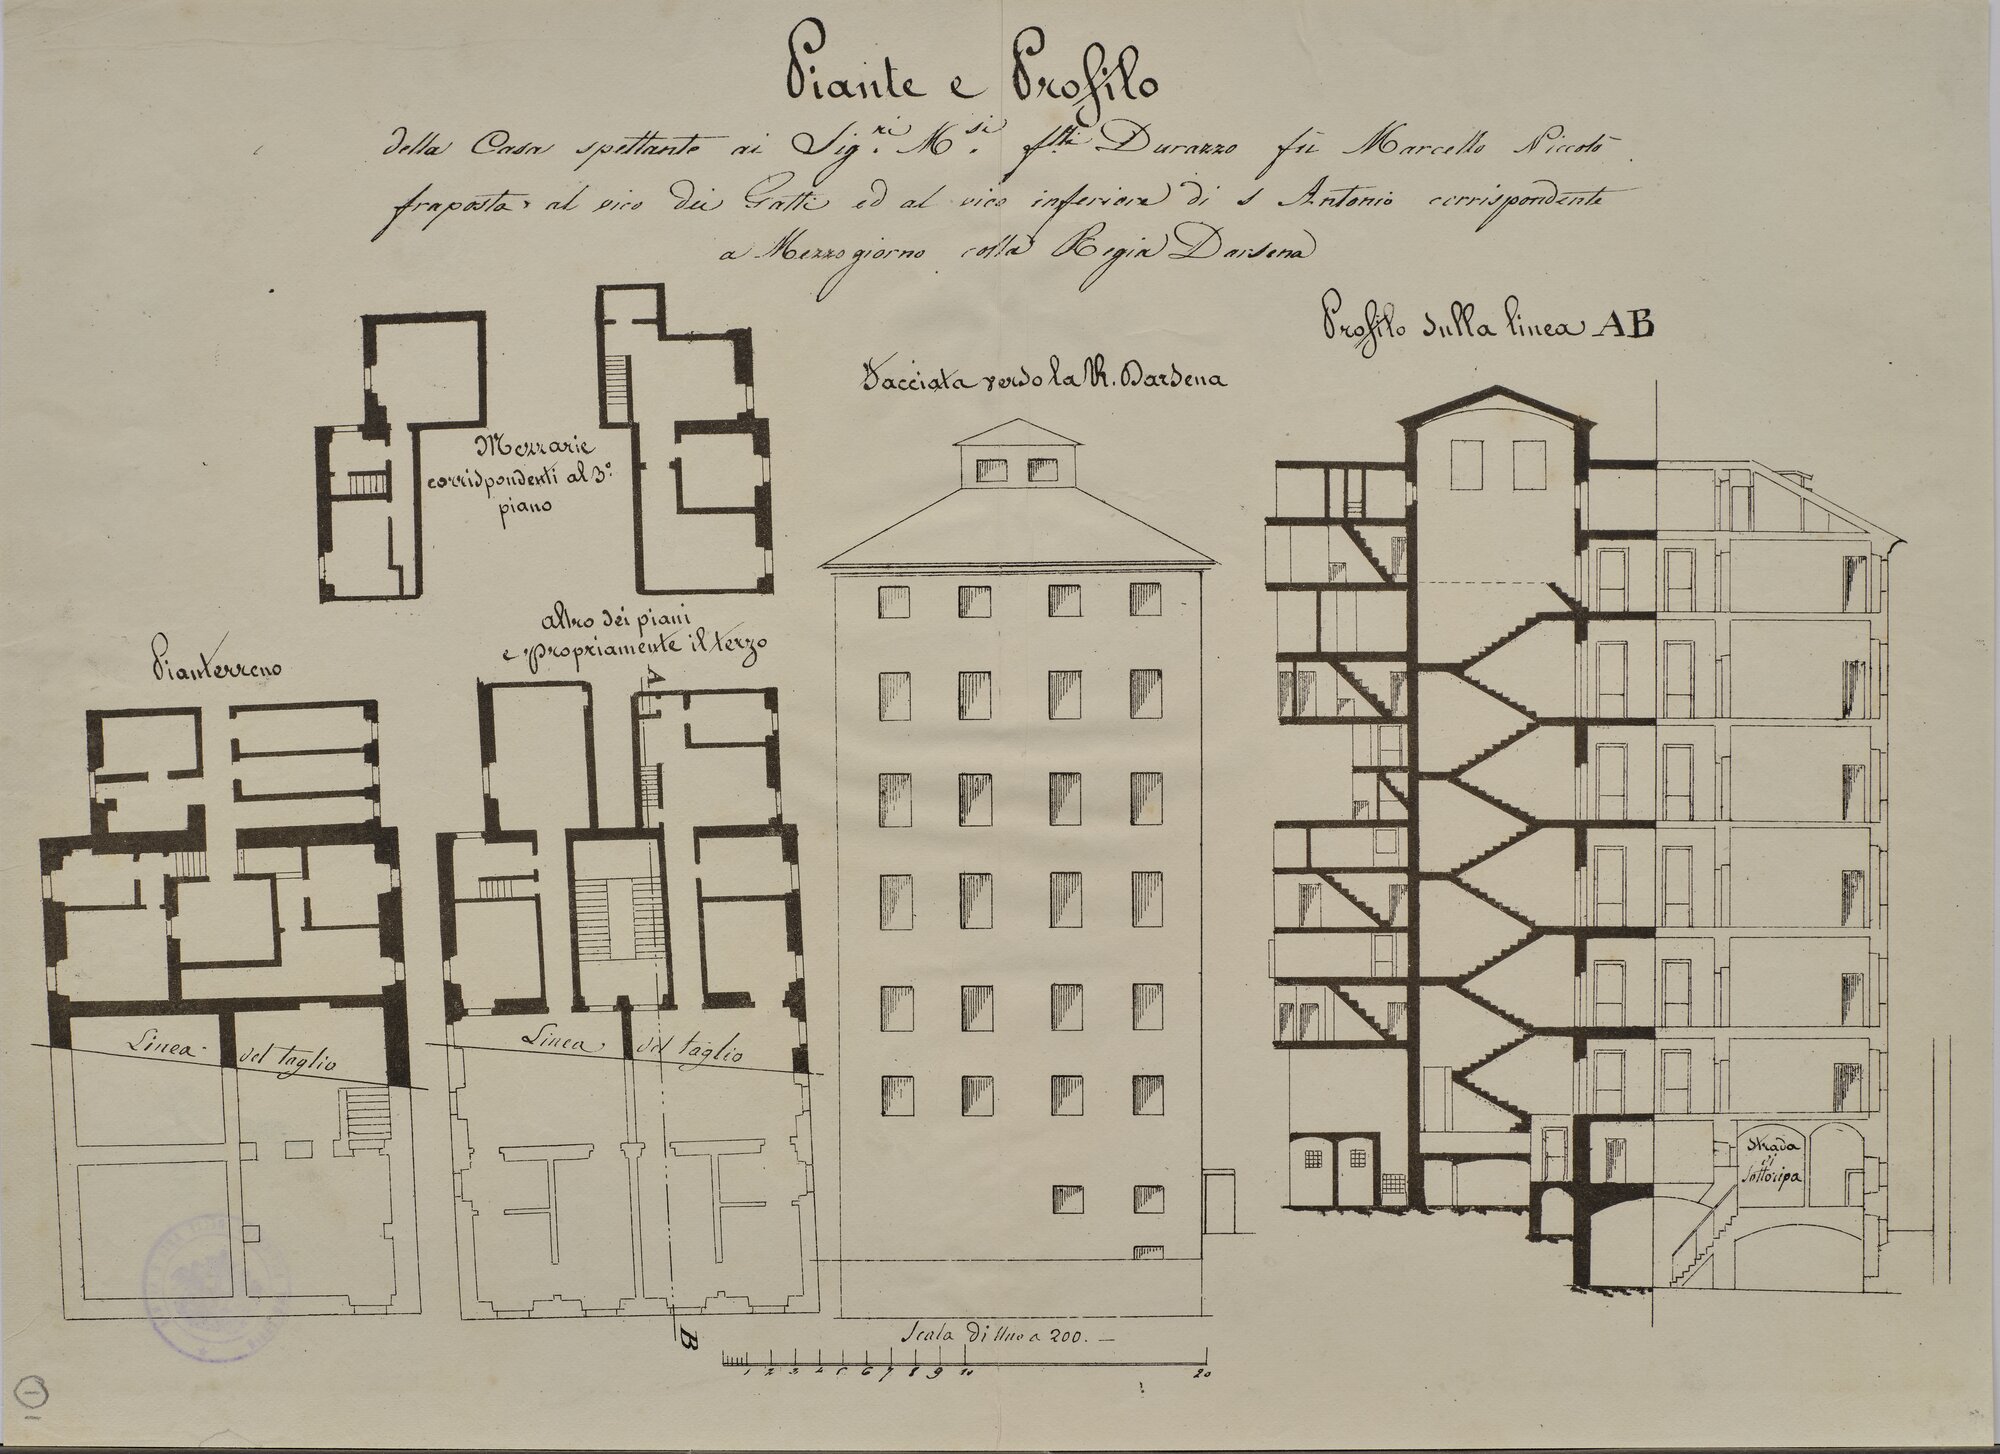 Piante e Profilo
della Casa spettante ai Sig.ri M.si f.lli Durazzo fù Marcello Niccolò
fraposta al vico dei Gatti ed al vico inferiore di s Antonio corrispondente
a Mezzogiorno colla Regia Darsena
Profilo sulla linea AB
Facciata verso la R. Darsena
Mezzarie
corrispondenti al 3.º
piano
altro dei piani
e propriamente il terzo
Pianterreno
A
Linea del taglio
Linea del taglio
Strada
di
Sottoripa
B
Scala di Uno a 200. —
1 2 3 4 5 6 7 8 9 10 20